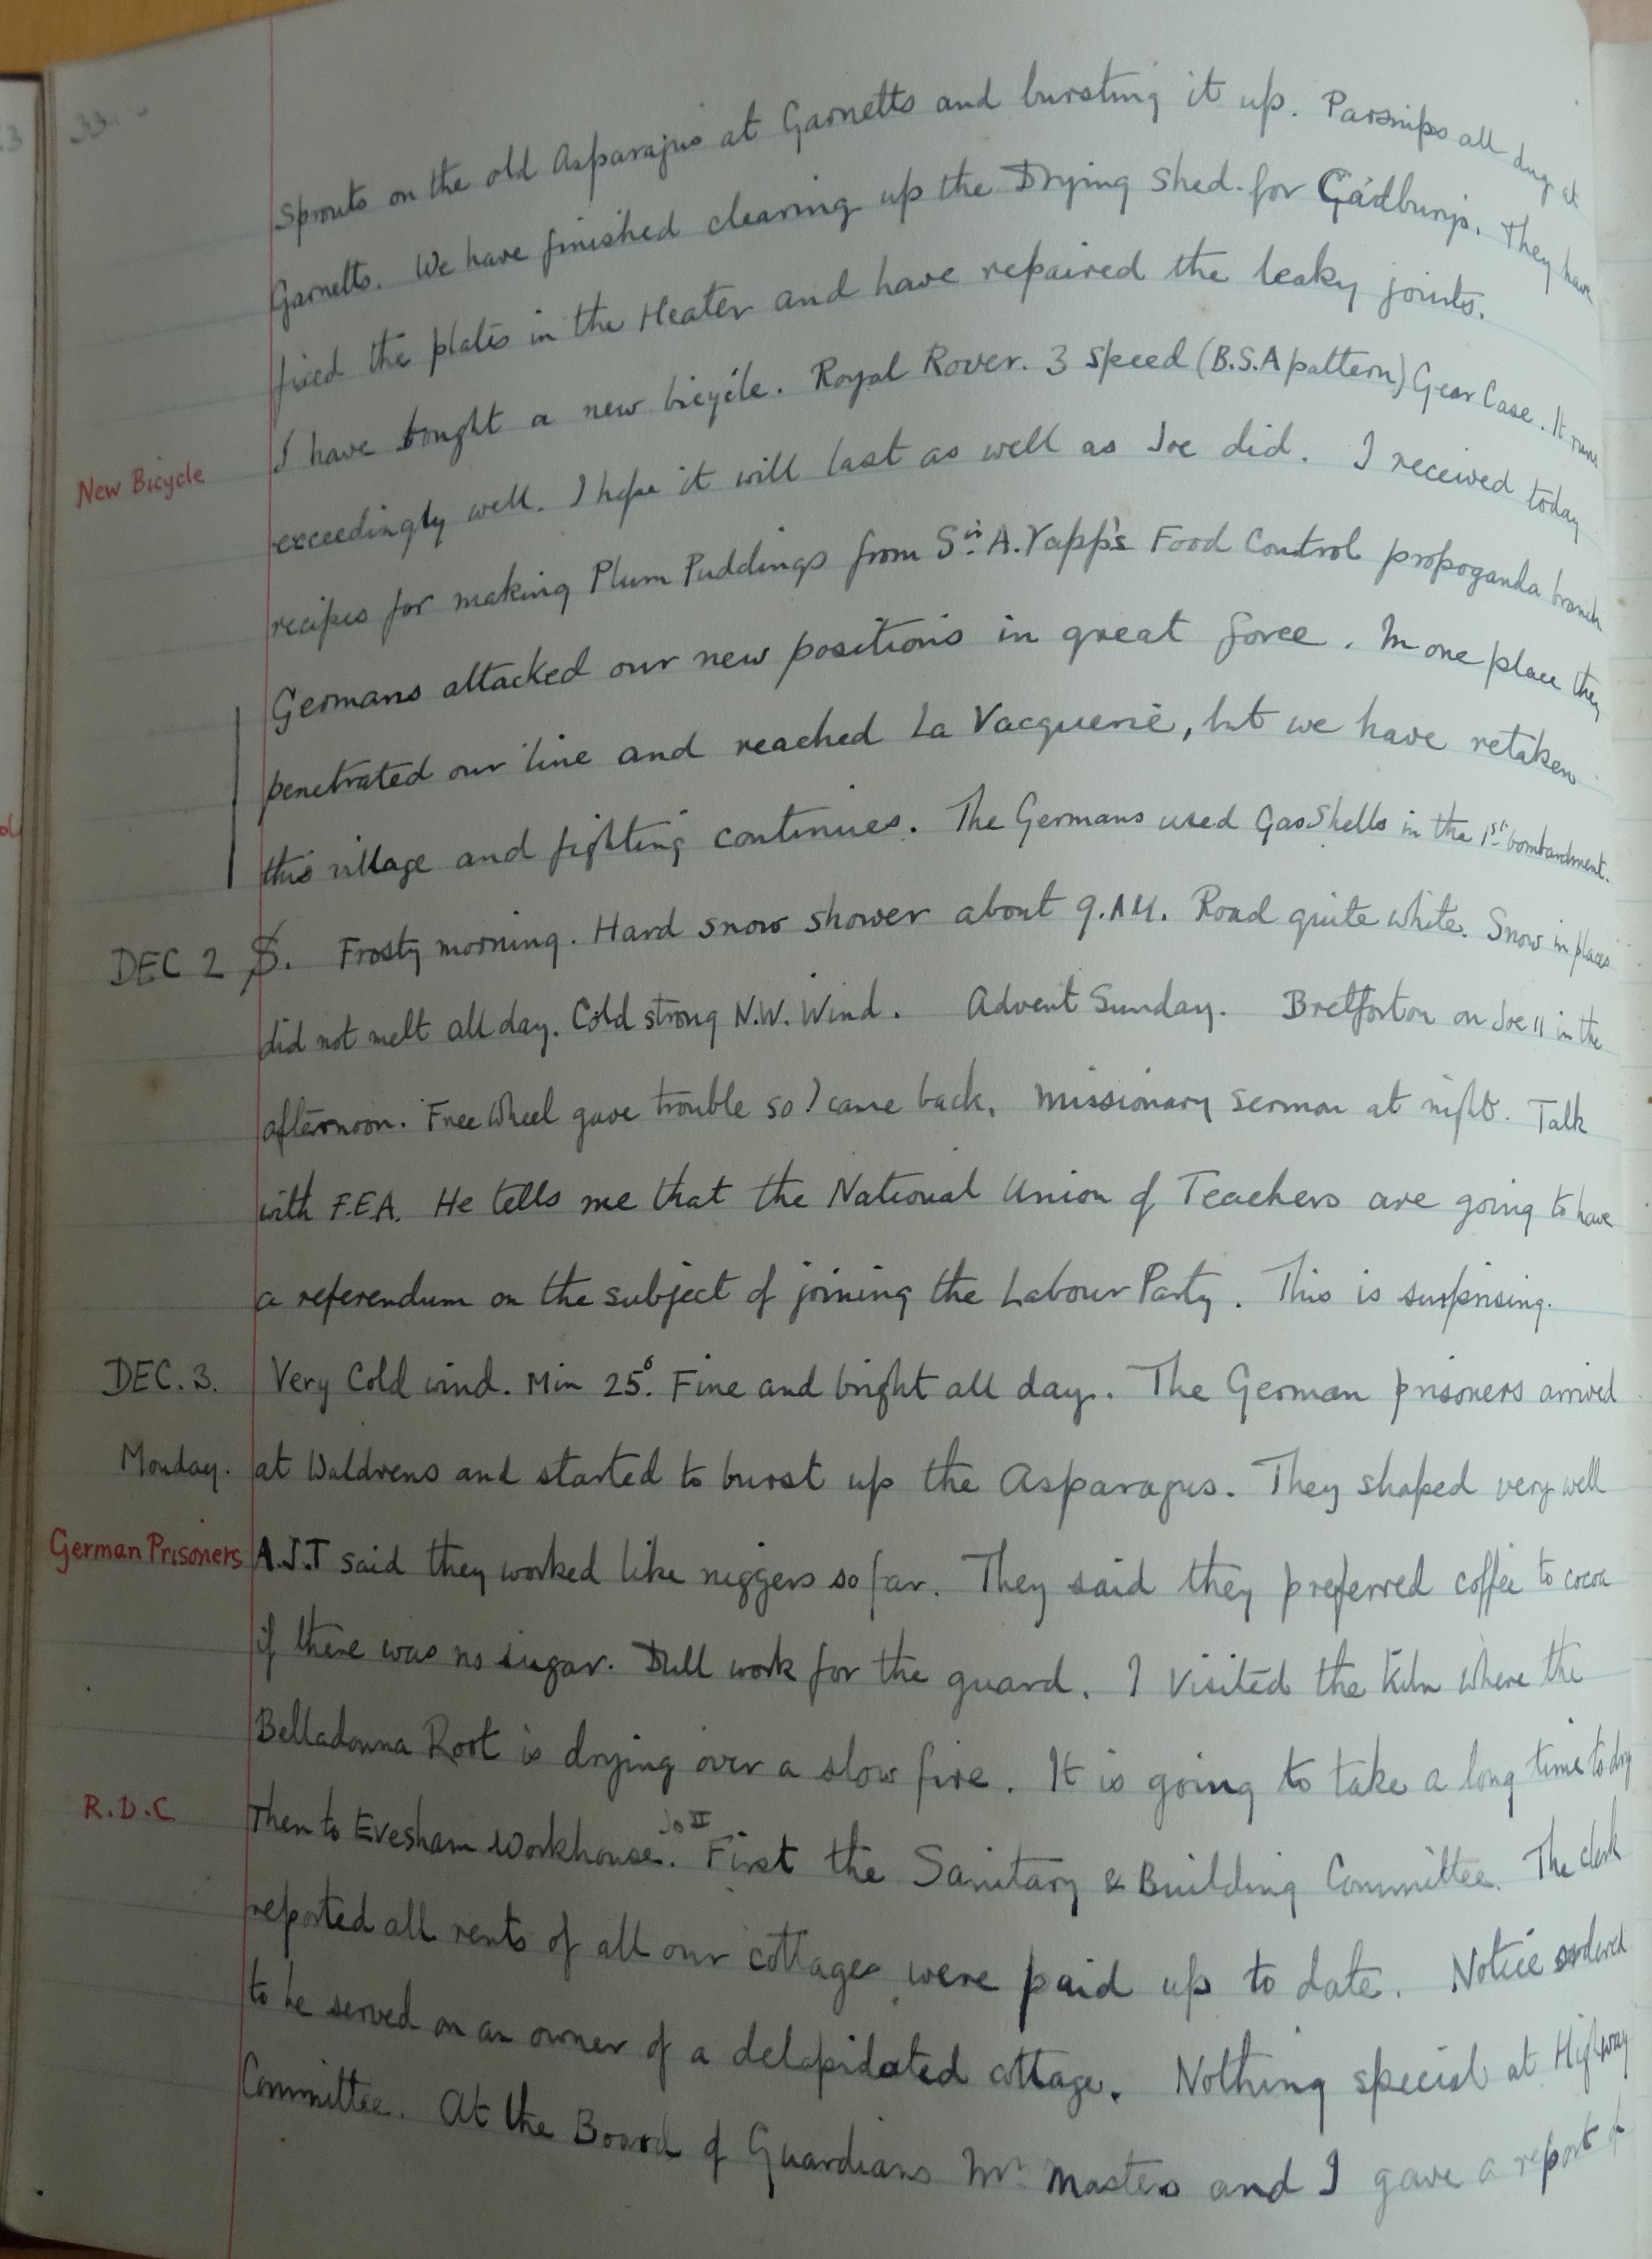 Sprouts on the old Asparagus at Garnetts and bursting it up. Parsnips all dug at
Garnetts. We have finished clearing up the Drying Shed for Cadburys. They have
fixed the plates in the Heater and have repaired the leaky joints.
I have bought a new bicycle. Royal Rover. 3 speed (B.S.A pattern) Gear Case. It runs
New Bicycle
exceedingly well. I hope it will last as well as Joe did. I received today
recipes for making Plum Puddings from Sir A. Yapp's Food Control propoganda branch
Germans attacked our new positions in great force. In one place they
penetrated our line and reached La Vacquerie, but we have retaken
this village and fighting continues. The Germans used Gas Shells in the 1st bombardment.
DEC 2 S. Frosty morning. Hard snow shower about 9.AM. Road quite white. Snow in places
did not melt all day. Cold strong N.W. Wind. Advent Sunday. Bretforton on Joe II in the
afternoon. Free Wheel gave trouble so I came back. Missionary Sermon at night. Talk
with F.E.A. He tells me that the National Union of Teachers are going to have
a referendum on the subject of joining the Labour Party. This is surprising.
DEC. 3. Very Cold wind. Min 25°. Fine and bright all day. The German prisoners arrived
Monday. at Waldrens and started to burst up the Asparagus. They shaped very well
German Prisoners A.J.T said they worked like niggers so far. They said they preferred coffee to cocoa
if there was no sugar. Dull work for the guard. I visited the Kiln where the
Belladonna Root is drying over a slow fire. It is going to take a long time to dry
R.D.C Then to Evesham Workhouse. Jo II First the Sanitary & Building Committee. The clerk
reported all rents of all our cottages were paid up to date. Notice ordered
to be served on an owner of a delapidated cottage. Nothing special at Highway
Committee. At the Board of Guardians Mr Masters and I gave a report of